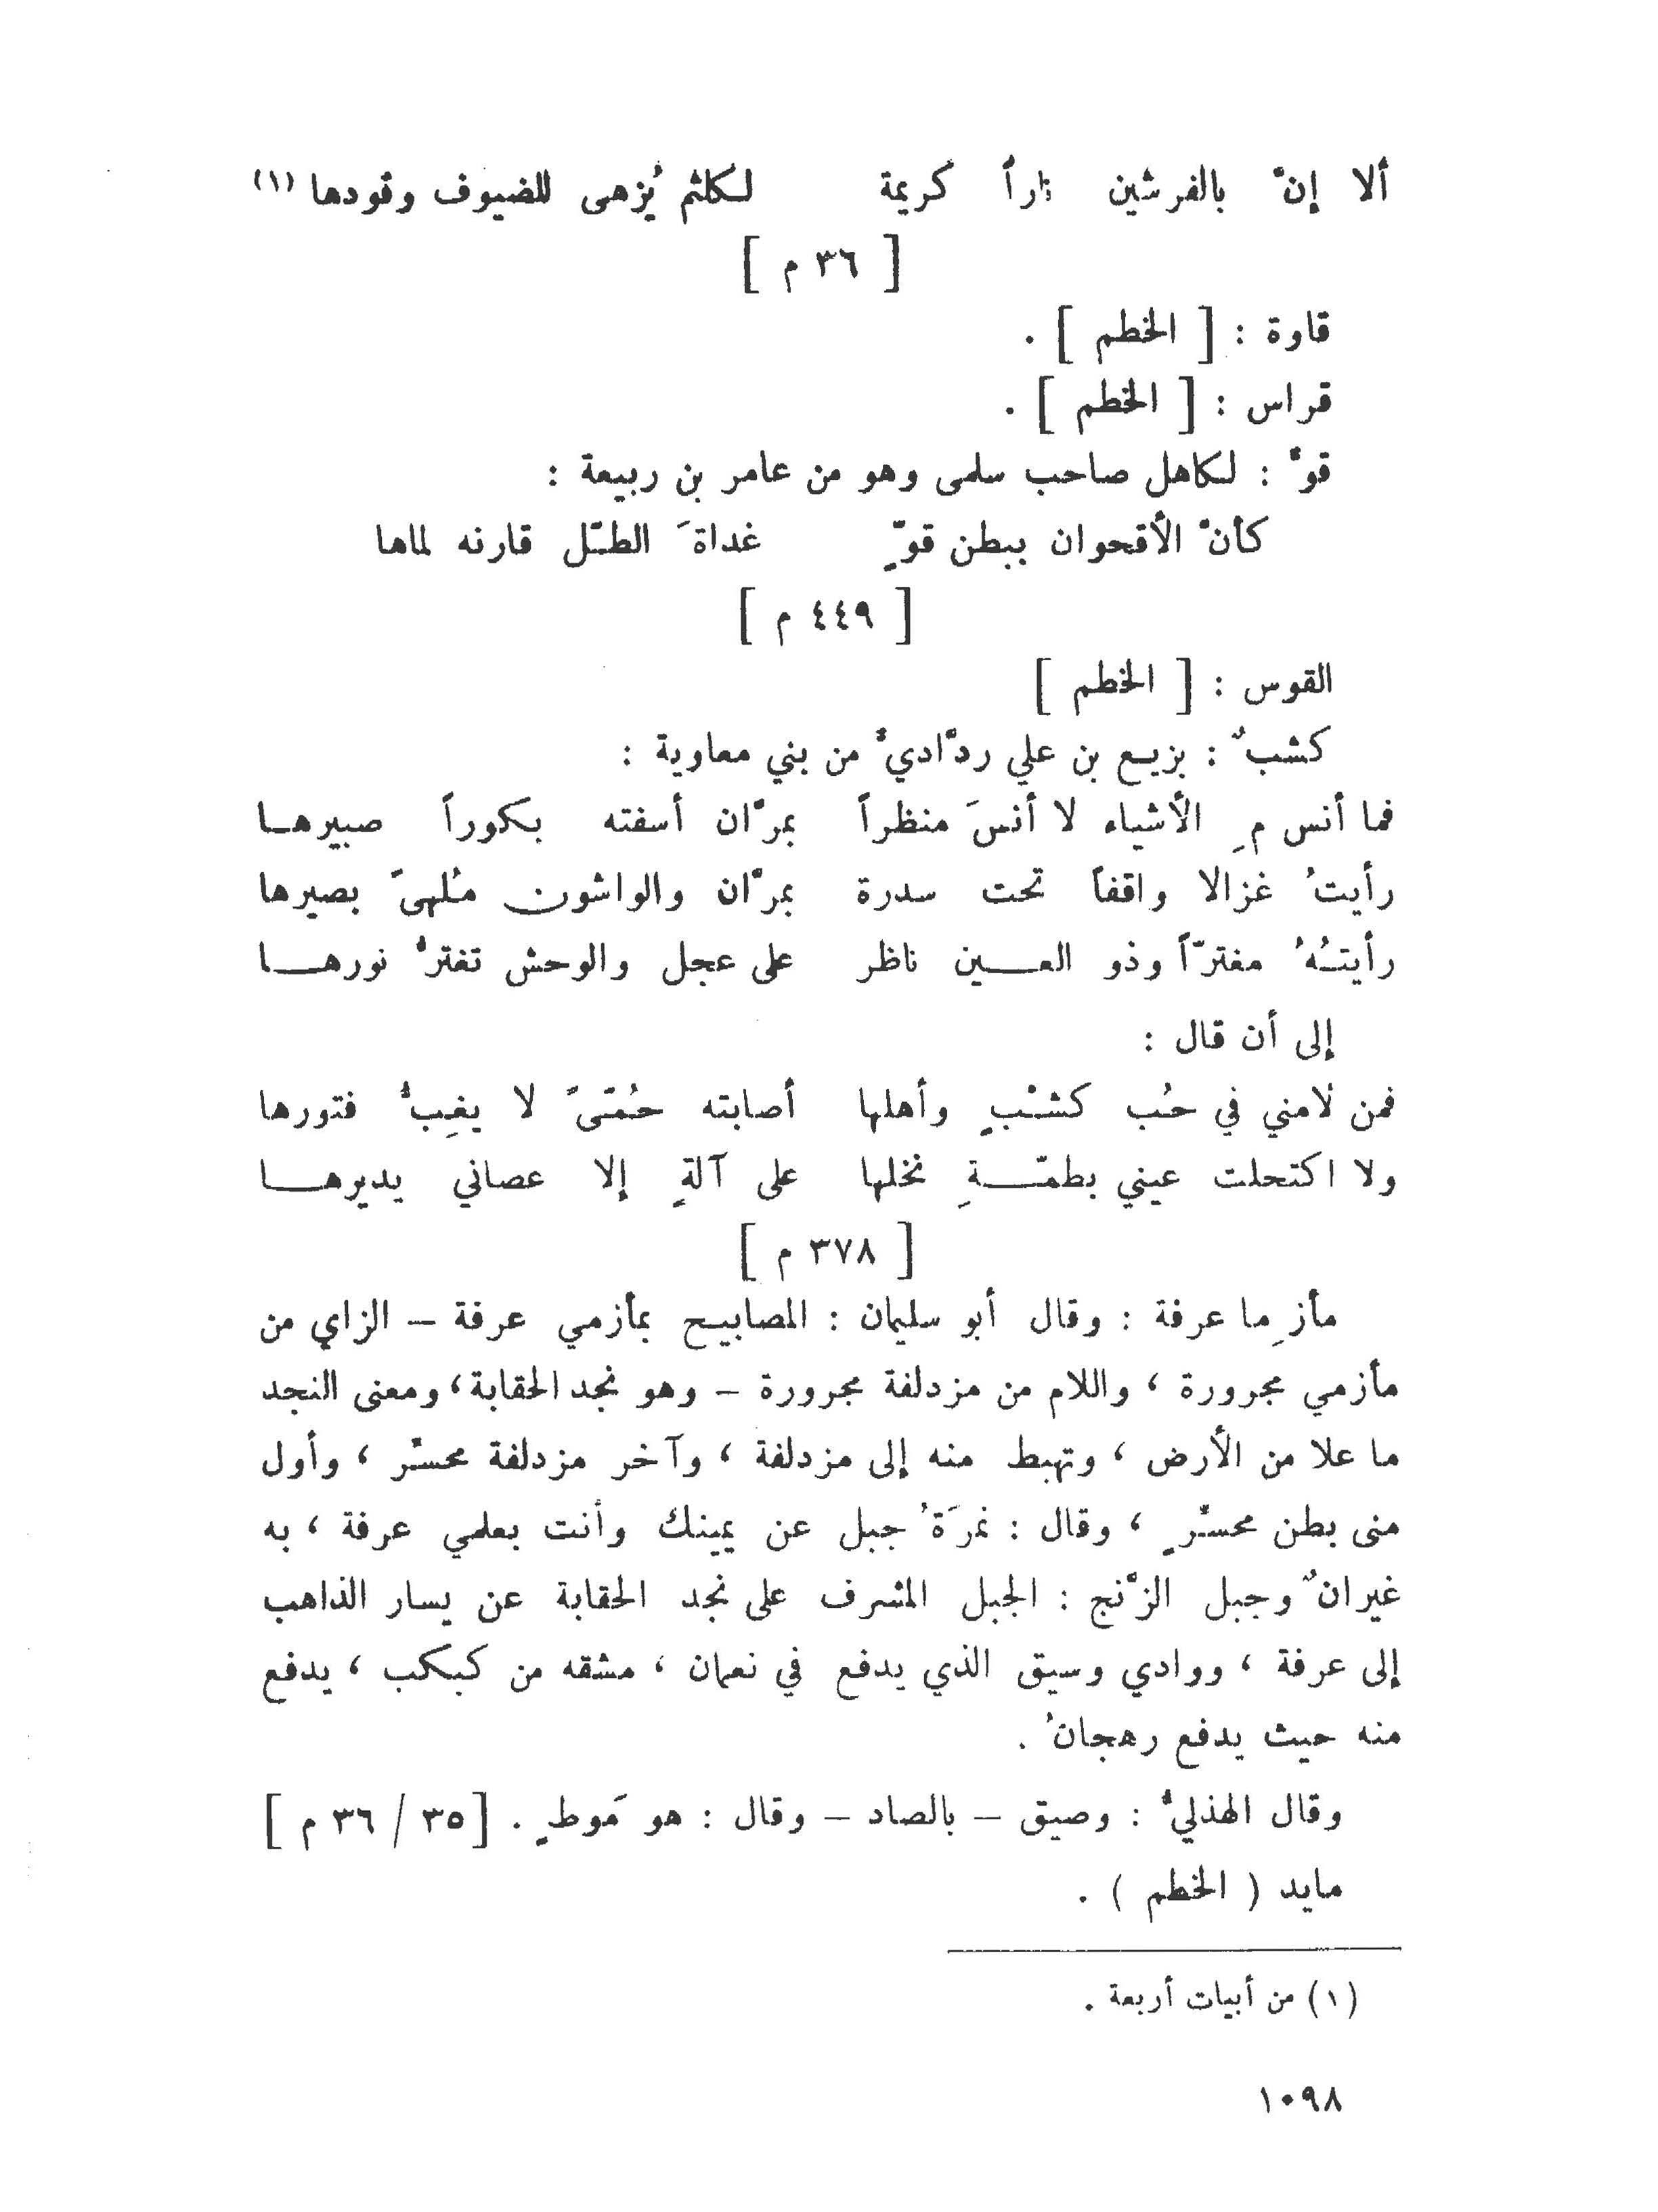 ألا إنّ بالفرشين ناراً كريمة لكلثم يُزهى للضيوف وقودها (١)
[ ٣٦ م ]
قاوة : [ الخطم ] .
قراس : [ الخطم ] .
قوٌّ : لكاهل صاحب سلمى وهو من عامر بن ربيعة :
كأنّ الأقحوان ببطن قوٍّ غداةَ الطّل قارنه لماها
[ ٤٤٩ م ]
القوس : [ الخطم ]
كشبٌ : بزيع بن علي ردّاديٌّ من بني معاوية :
فما أنس مِ الأشياء لا أنسَ منظراً بمرّان أسفته بكوراً صبيرها
رأيتُ غزالا واقفاً تحت سدرة بمرّان والواشون مُلهىً بصيرها
رأيتُهُ مفترّاً وذو العين ناظر على عجل والوحش تفترُّ نورها
إلى أن قال :
فمن لامني في حُب كشْبٍ وأهلها أصابته حُمّىً لا يغِبُّ فتورها
ولا اكتحلت عيني بطمّةِ نخلها على آلةٍ إلا عصاني يديرها
[ ٣٧٨ م ]
مأزِما عرفة : وقال أبو سليمان : المصابيح بمأزمي عرفة – الزاي من
مأزمي مجرورة ، واللام من مزدلفة مجرورة – وهو نجد الحقابة، ومعنى النجد
ما علا من الأرض ، وتهبط منه إلى مزدلفة ، وآخر مزدلفة محسّر ، وأول
منى بطن محسّرٍ ، وقال : نمرَةُ جبل عن يمينك وأنت بعلمي عرفة ، به
غيرانٌ وجبل الزّنج : الجبل المشرف على نجد الحقابة عن يسار الذاهب
إلى عرفة ، ووادي وسيق الذي يدفع في نعمان ، مشقه من كبكب ، يدفع
منه حيث يدفع رهجانُ .
وقال الهذليُّ : وصيق – بالصاد – وقال : هو مَوطٍ . [٣٥ / ٣٦ م ]
مايد ( الخطم ) .
(١) من أبيات أربعة .
١٠٩٨